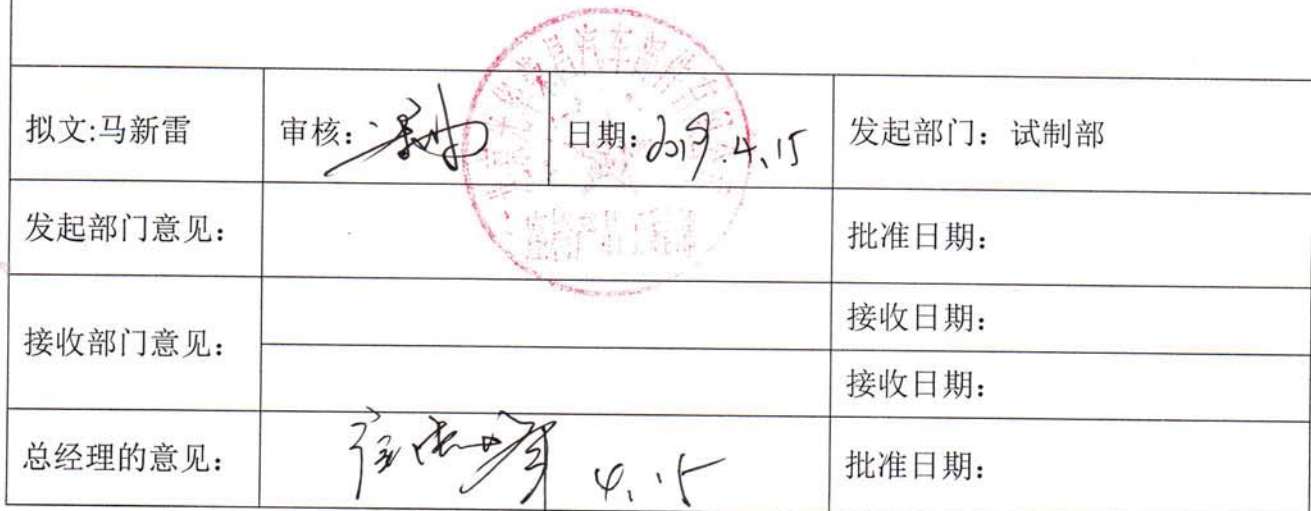 拟文:马新雷 审核： 日期：2019.4.15 发起部门：试制部
发起部门意见： 批准日期：
接收部门意见： 接收日期：
接收日期：
总经理的意见： 4.15 批准日期：